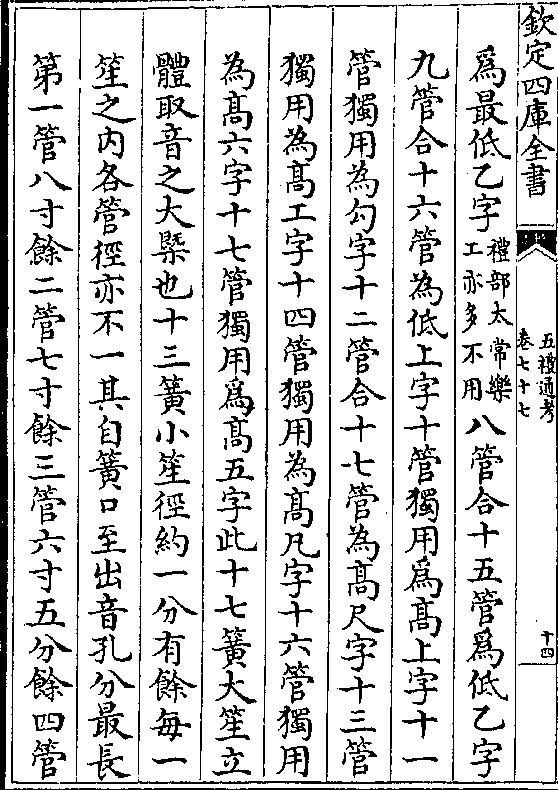 欽定四庫全書
五禮通考
卷七十七
十四
爲最低乙字禮部太常樂工亦多不用八管合十五管爲低乙字
九管合十六管為低上字十管獨用爲髙上字十一
管獨用為勾字十二管合十七管為髙尺字十三管
獨用為髙工字十四管獨用為髙凡字十六管獨用
為髙六字十七管獨用爲髙五字此十七簧大笙立
體取音之大槩也十三簧小笙徑約一分有餘每一
笙之内各管徑亦不一其自簧口至出音孔分最長
第一管八寸餘二管七寸餘三管六寸五分餘四管